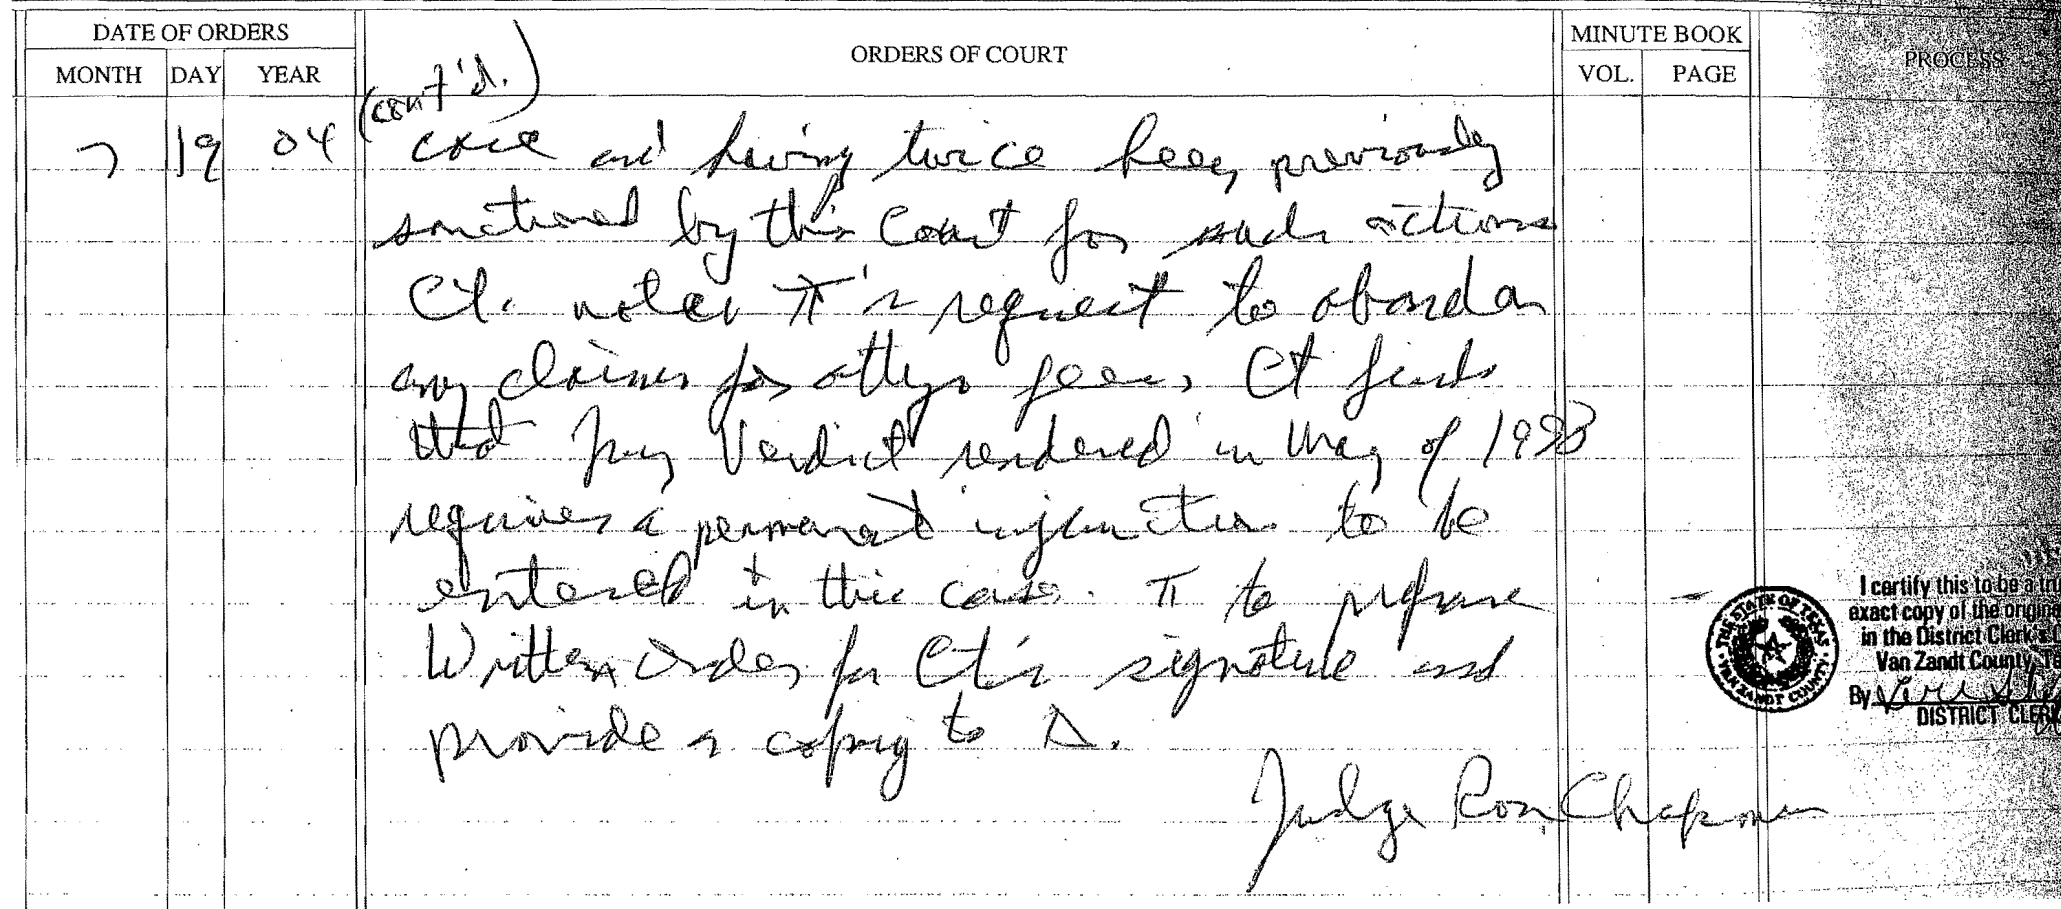 DATE OF ORDERS
MONTH DAY YEAR
ORDERS OF COURT
MINUTE BOOK
VOL. PAGE
PROCESS
(cont'd.)
7 19 04 case and having twice been previously
sanctioned by this Court for such actions
Ct. notes π's request to abandon
any claims for attys fees, Ct finds
that Jury Verdict rendered in May of 1998
requires a permanent injunction to be
entered in this case. π to prepare
Written order for Ct's signature and
provide a copy to Δ.
Judge Ron Chapman
THE STATE OF TEXAS
VAN ZANDT COUNTY
I certify this to be a tru
exact copy of the origina
in the District Clerk's O
Van Zandt County, Te
By
DISTRICT CLERK